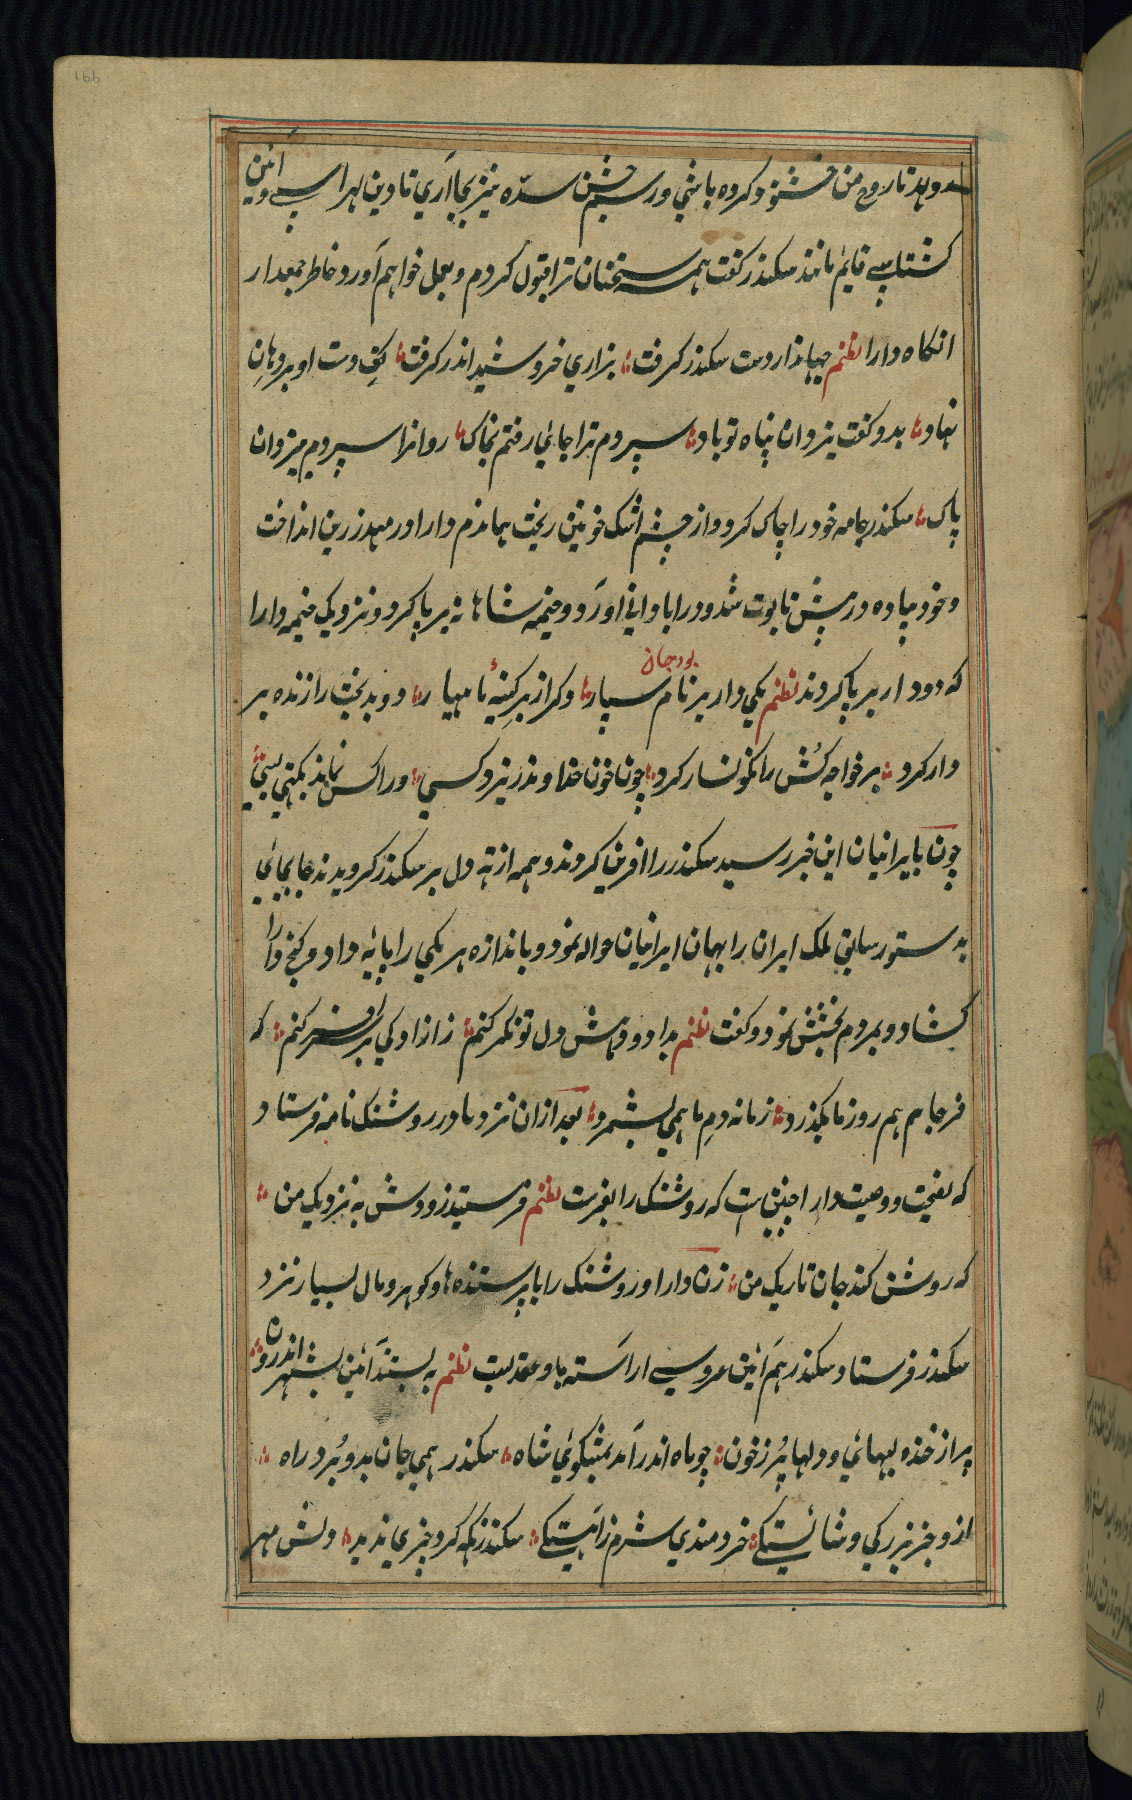 ۱۶۶
بدو بدهد تا روح من خشنود کرده باشی و رسم جشن سده نیز بجا آری تا دین لهراسپی و آئین
کشتاسپی قایم ماند سکندر کفت همه سخنان ترا قبول کردم و بعمل خواهم آورد خاطر جمعدار
انکاه دارا نظم جهاندار دست سکندر کرفت بزاری خروشیدن اندر کرفت کف دست او بر دهان
نهاد بدو کفت یزدان پناه تو باد سپردم ترا جای رفتم بخاک روانرا سپردم بیزدان
پاک سکندر جامه خود را چاک کرد و از چشم اشک خونین ریخت هماندم دارا را در مهد زرین انداخت
و خود پیاده در پیش تابوت شد و در آبادانی آورد و خیمه شاهانه بر پا کرد و نزدیک خیمه دارا
بود جان
که دو دار بر پا کردند نظم یکی دار بر نام سیار دکر از بر کینهٔ ماهیار دو بدبخت را زنده بر
دار کرد سر خواجه کش را نکونسار کرد چون خون خداوند ریزد کسی ورا کس نماند بکیتی بسی
چون بایرانیان این خبر رسید سکندر را آفرین کردند و همه از ته دل بر سکندر کرویدند جا بجای
بدستور سابق ملک ایران را بهمان ایرانیان حواله نمود و باندازه هر یکی را پایه داد و کنج دارا
کشاد و بمردم بخشش نمود و کفت نظم بداد و دهش دل توانکر کنم ز آزادکی بر سر افسر کنم که
فرجام هم روز ما بکذرد زمانه دم ما همی بشمرد بعد ازان نزد مادر روشنک نامه فرستاد
که نصیحت و وصیت دارا چنین است که روشنک را بفرست نظم فرستید زودش به نزدیک من
که روشن کند جان تاریک من زن دارا روشنک را با پرستنده ها و کوهر و مال بسیار نزد
سکندر فرستاد سکندر هم آئین عروسی آراسته با او عقد بست نظم به بستند آئین بشهر اندرون
پر از خنده لبهای و دلها پر ز خون چو ماه اندر آمد بمشکوی شاه سکندر همی جان بدو برد راه
ازو جز بزرکی و شایستکی خردمندی شرم ز آهستکی سکندر نکه کرد چیزی ندید دلش مهر